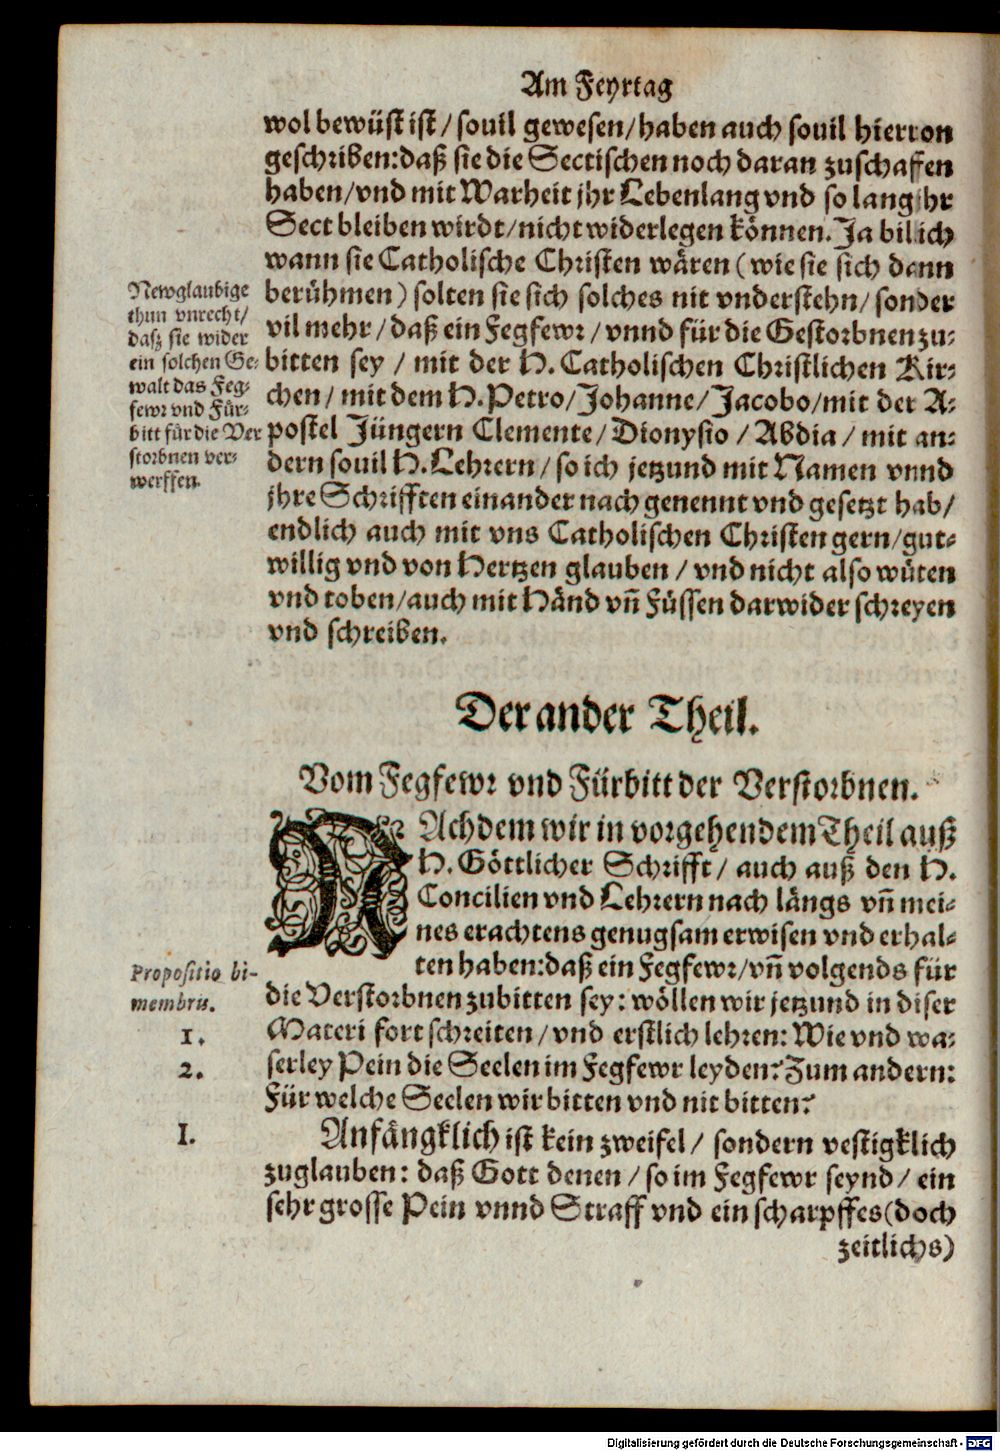 Am Feyrtag
wol bewüst ist / souil gewesen / haben auch souil hieruon
geschriben: daß sie die Sectischen noch daran zuschaffen
haben / vnd mit Warheit jhr Lebenlang vnd so lang jhr
Sect bleiben wirdt / nicht widerlegen können. Ja bilich
wann sie Catholische Christen wären (wie sie sich dann
berühmen) solten sie sich solches nit vnderstehn / sonder
vil mehr / daß ein Fegfewr / vnnd für die Gestorbnen zu-
bitten sey / mit der H. Catholischen Christlichen Kir-
chen / mit dem H. Petro / Johanne / Jacobo / mit der A-
postel Jüngern Clemente / Dionysio / Abdia / mit an-
dern souil H. Lehrern / so ich jetzund mit Namen vnnd
jhre Schrifften einander nach genennt vnd gesetzt hab /
endlich auch mit vns Catholischen Christen gern / gut-
willig vnd von Hertzen glauben / vnd nicht also wüten
vnd toben / auch mit Händ vñ Füssen darwider schreyen
vnd schreiben.
Newglaubige
thun vnrecht /
dasz sie wider
ein solchen Ge-
walt das Feg-
fewr vnd Für-
bitt für die Ver
storbnen ver-
werffen.
Der ander Theil.
Vom Fegfewr vnd Fürbitt der Verstorbnen.
NAchdem wir in vorgehendem Theil auß
H. Göttlicher Schrifft / auch auß den H.
Concilien vnd Lehrern nach längs vñ mei-
nes erachtens genugsam erwisen vnd erhal-
ten haben: daß ein Fegfewr / vñ volgends für
die Verstorbnen zubitten sey: wöllen wir jetzund in diser
Materi fort schreiten / vnd erstlich lehren: Wie vnd wa-
serley Pein die Seelen im Fegfewr leyden? Zum andern:
Für welche Seelen wir bitten vnd nit bitten?
Propositio bi-
membris.
1.
2.
I.
Anfängklich ist kein zweifel / sondern vestigklich
zuglauben: daß Gott denen / so im Fegfewr seynd / ein
sehr grosse Pein vnnd Straff vnd ein scharpffes (doch
zeitlichs)
Digitalisierung gefördert durch die Deutsche Forschungsgemeinschaft - DFG